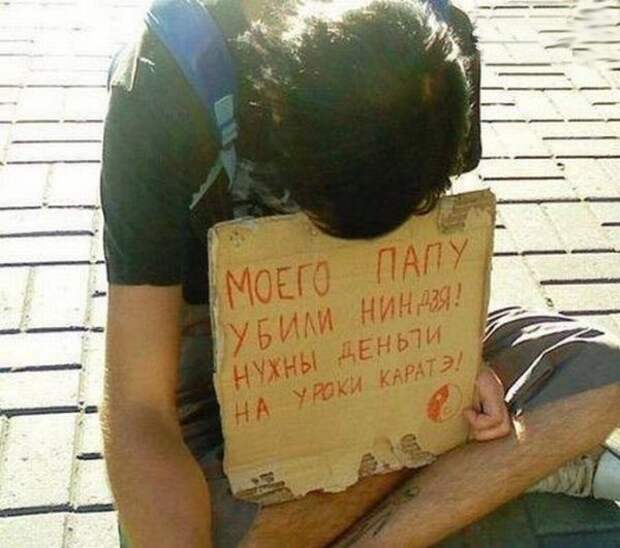 МОЕГО ПАПУ
УБИЛИ НИНДЗЯ!
НУЖНЫ ДЕНЬГИ
НА УРОКИ КАРАТЭ!